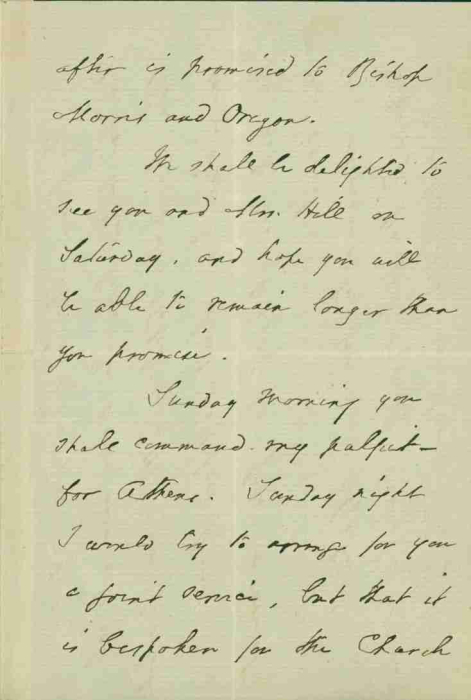 after is promised to Bishop
Morris and Oregon.
We shall be delighted to
see you and Mrs. Hill on
Saturday, and hope you will
be able to remain longer than
you promise.
Sunday morning you
shall command my pulpit
for Athens. Sunday night
I would try to arrange for you
a joint service, but that it
is bespoken for the Church